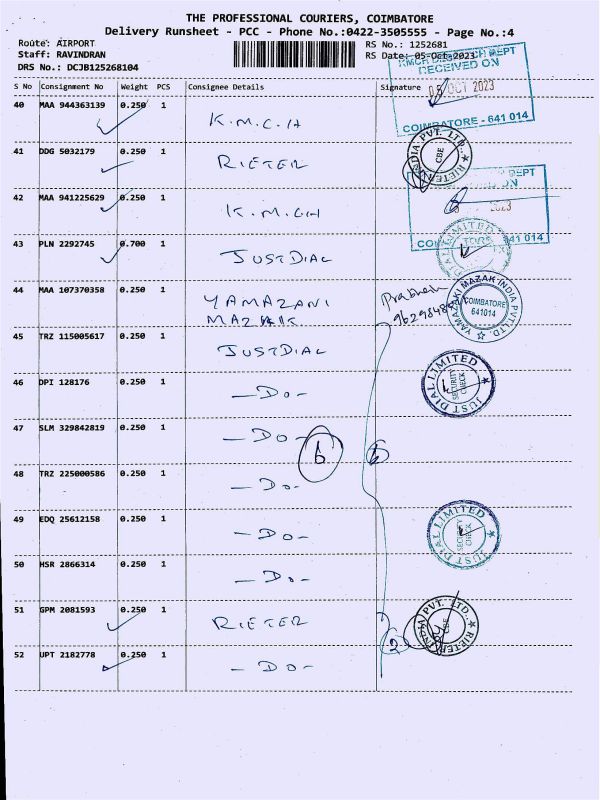 THE PROFESSIONAL COURIERS, COIMBATORE
Delivery Runsheet - PCC - Phone No.:0422-3505555 - Page No.:4
Route: AIRPORT
RS No.: 1252681
Staff: RAVINDRAN
RS Date: 05-Oct-2023
DRS No.: DCJB125268104
DEPT
RECEIVED ON
S No Consignment No Weight PCS Consignee Details Signature
05 OCT 2023
40 MAA 944363139 0.250 1 K.M.C.H
COIMBATORE - 641 014
41 DDG 5032179 0.250 1 RIETER
RIETER INDIA PVT. LTD. CBE
DEPT
ON
42 MAA 941225629 0.250 1 K.M.CH
2023
641 014
43 PLN 2292745 0.700 1 JUSTDIAL
JUST DIAL LIMITED
44 MAA 107370358 0.250 1 YAMAZANI
MAZAK
YAMAZAKI MAZAK INDIA PVT LTD
COIMBATORE
641014
45 TRZ 115005617 0.250 1 JUSTDIAL
46 DPI 128176 0.250 1 -DO-
JUST DIAL LIMITED
SECURITY
CHECK
47 SLM 329842819 0.250 1 -DO-
6 6
48 TRZ 225000586 0.250 1 -DO-
49 EDQ 25612158 0.250 1 -DO-
JUST DIAL LIMITED
SECURITY
CHECK
50 HSR 2866314 0.250 1 -DO-
51 GPM 2081593 0.250 1 RIETER
RIETER INDIA PVT. LTD. CBE
2
52 UPT 2182778 0.250 1 -DO-